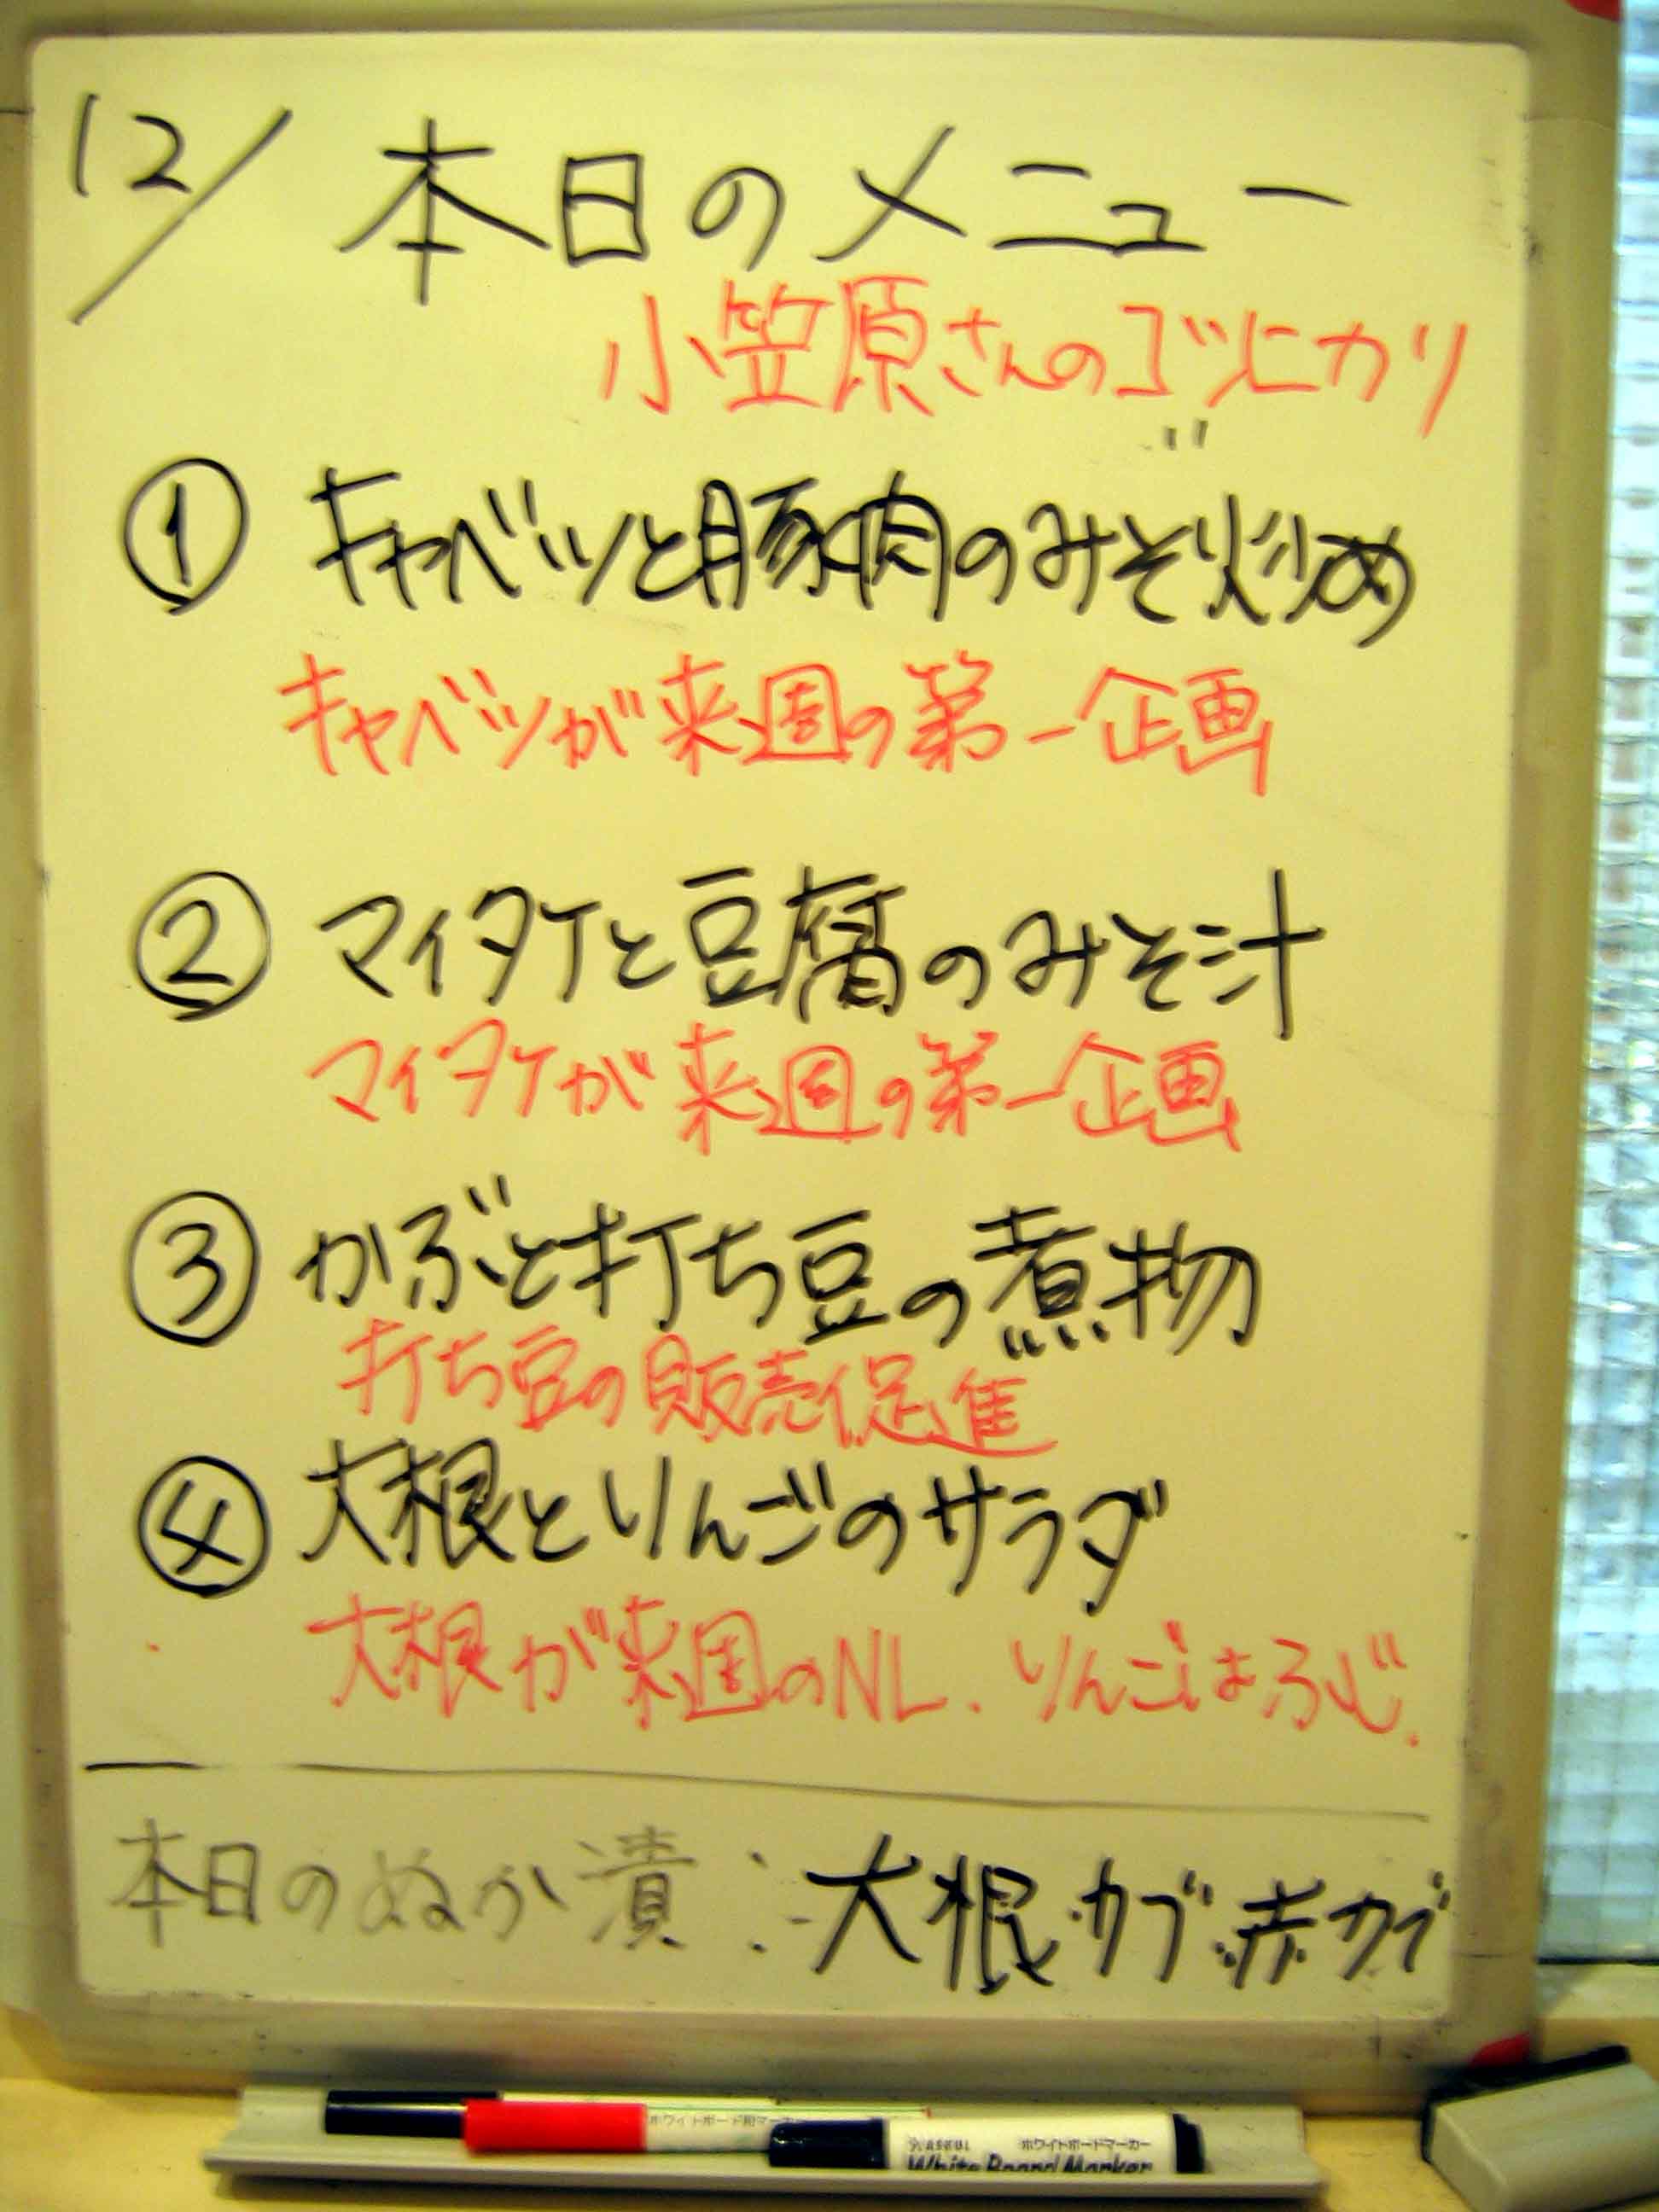 12/ 本日のメニュー
小笠原さんのゴヅヒカリ
① キャベツと豚肉のみそ炒め
キャベツが来週の第一企画
② マイタケと豆腐のみそ汁
マイタケが来週の第一企画
③ かぶと打ち豆の煮物
打ち豆の販売促進
④ 大根とりんごのサラダ
大根が来週のNL. りんごはふじ.
本日のぬか漬:大根・カブ・赤カブ
ホワイトボード用マーカー
ASKUL ホワイトボードマーカー
White Board Marker